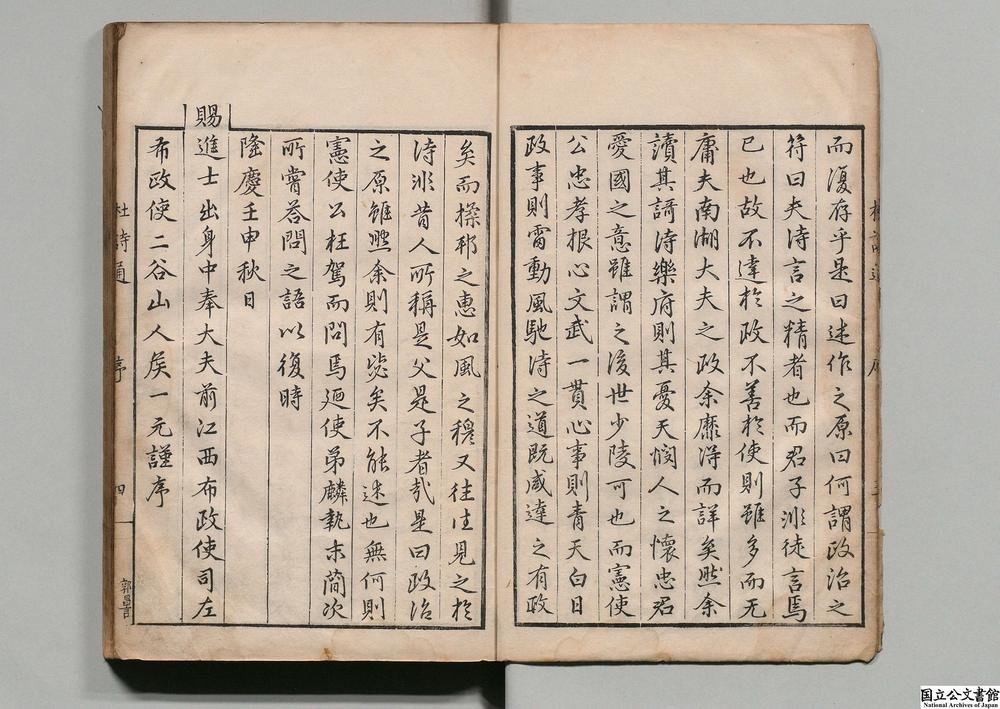 而復存乎是曰述作之原曰何謂政治之
符曰夫詩言之精者也而君子非徒言焉
已也故不達於政不善於使則雖多而无
庸夫南湖大夫之政余靡得而詳矣然余
讀其謌詩樂府則其憂天憫人之懷忠君
愛國之意雖謂之後世少陵可也而憲使
公忠孝根心文武一貫心事則青天白日
政事則雷動風馳詩之道既咸達之有政
矣而操邦之惠如風之穆又往往見之於
詩非昔人所稱是父是子者哉是曰政治
之原雖然余則有愆矣不能述也無何則
憲使公枉駕而問焉廼使弟麟執末簡次
所嘗荅問之語以復時
隆慶壬申秋日
賜進士出身中奉大夫前江西布政使司左
布政使二谷山人矦一元謹序
杜詩通
序
四
国立公文書館
National Archives of Japan